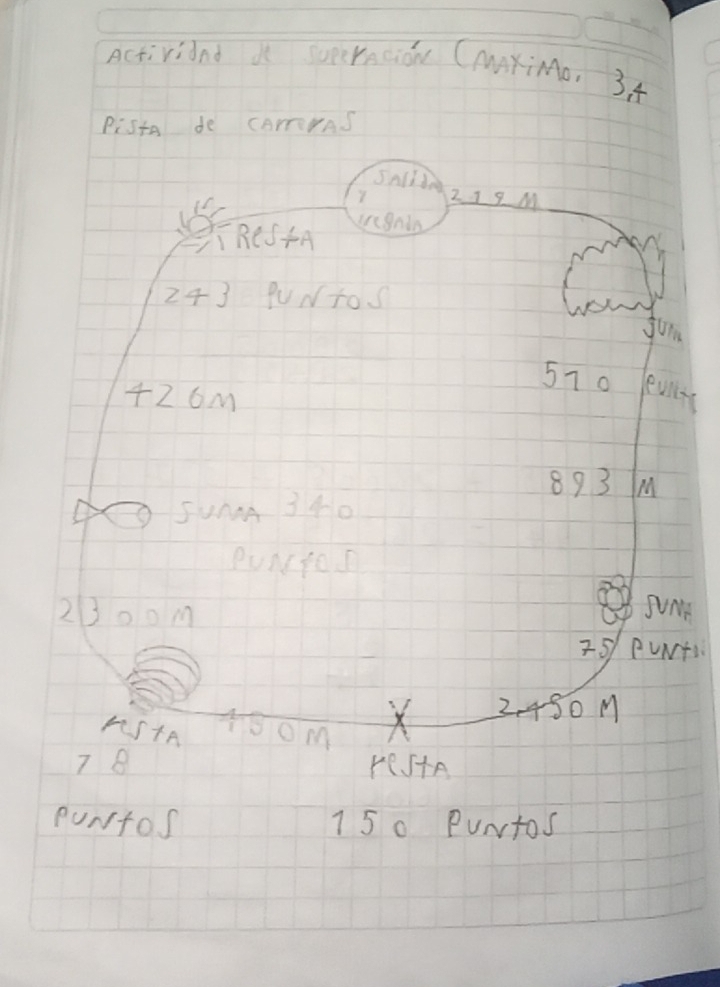 Actividad de superación (MAXIMO. 3,4
Pista de carreras
Salida
y
219 M
Resta
243 Puntos
Suma
510 Punt
426M
893 M
Suma 340
Puntos
2300M
Suma
75 Punt
2.450 M
450M
resta
78
Puntos
resta
150 Puntos